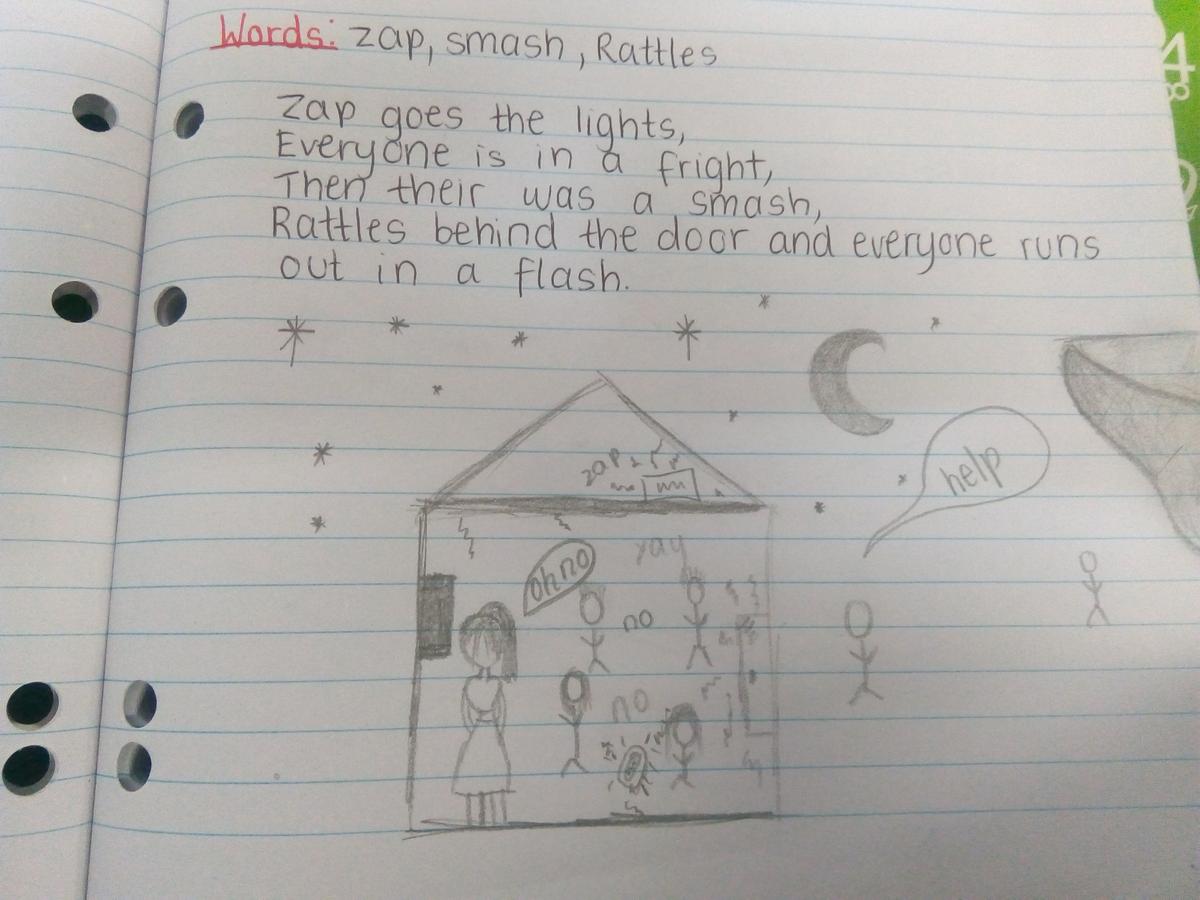 Words: zap, smash, Rattles
Zap goes the lights,
Everyone is in a fright,
Then their was a smash,
Rattles behind the door and everyone runs
out in a flash.
4
8
help
zap
oh no
yay
no
no